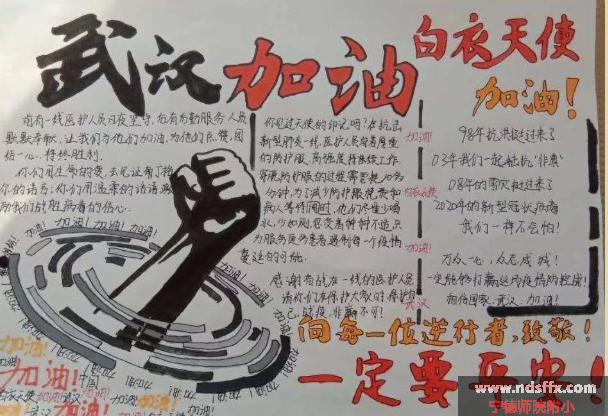 武汉加油
白衣天使
加油!
前有一线医护人员日夜坚守,后有后勤服务人员
默默奉献,让我们为他们加油,为他们点赞,团
结一心,得终胜利.
你们用生命的爱,去见证
你的诺言,你们用温柔的话语
励我们战胜病毒的信心.
你见过天使的印记吗?在抗击
新型肺炎一线,医护人员穿着厚重
的防护服,高强度持续工作.
穿脱防护服的过程需要
分钟,为了减少防护服
病人等待时间,他们尽量少喝
水,
为服务更多患者
感谢奋战在一线的医护人员
请你们在保护大家时保护
自己,战疫,非赢不可!
加油!
白衣天使
加油!
武汉
98年抗洪挺过来了
03年我们一起抗"非典"
08年的雪灾挺过来了
2020年的新型冠状病毒
我们一样不会怕!
万众一心,众志成城!
一定能够打赢这场疫情防控战!
相信国家,武汉,加油!
向每一位逆行者,致敬!
一定要平安!
加油!加油!加油!
加油!
加油!
加油!
中国
加油!
武汉
加油!
www.ndsffx.com
宁德师院附小